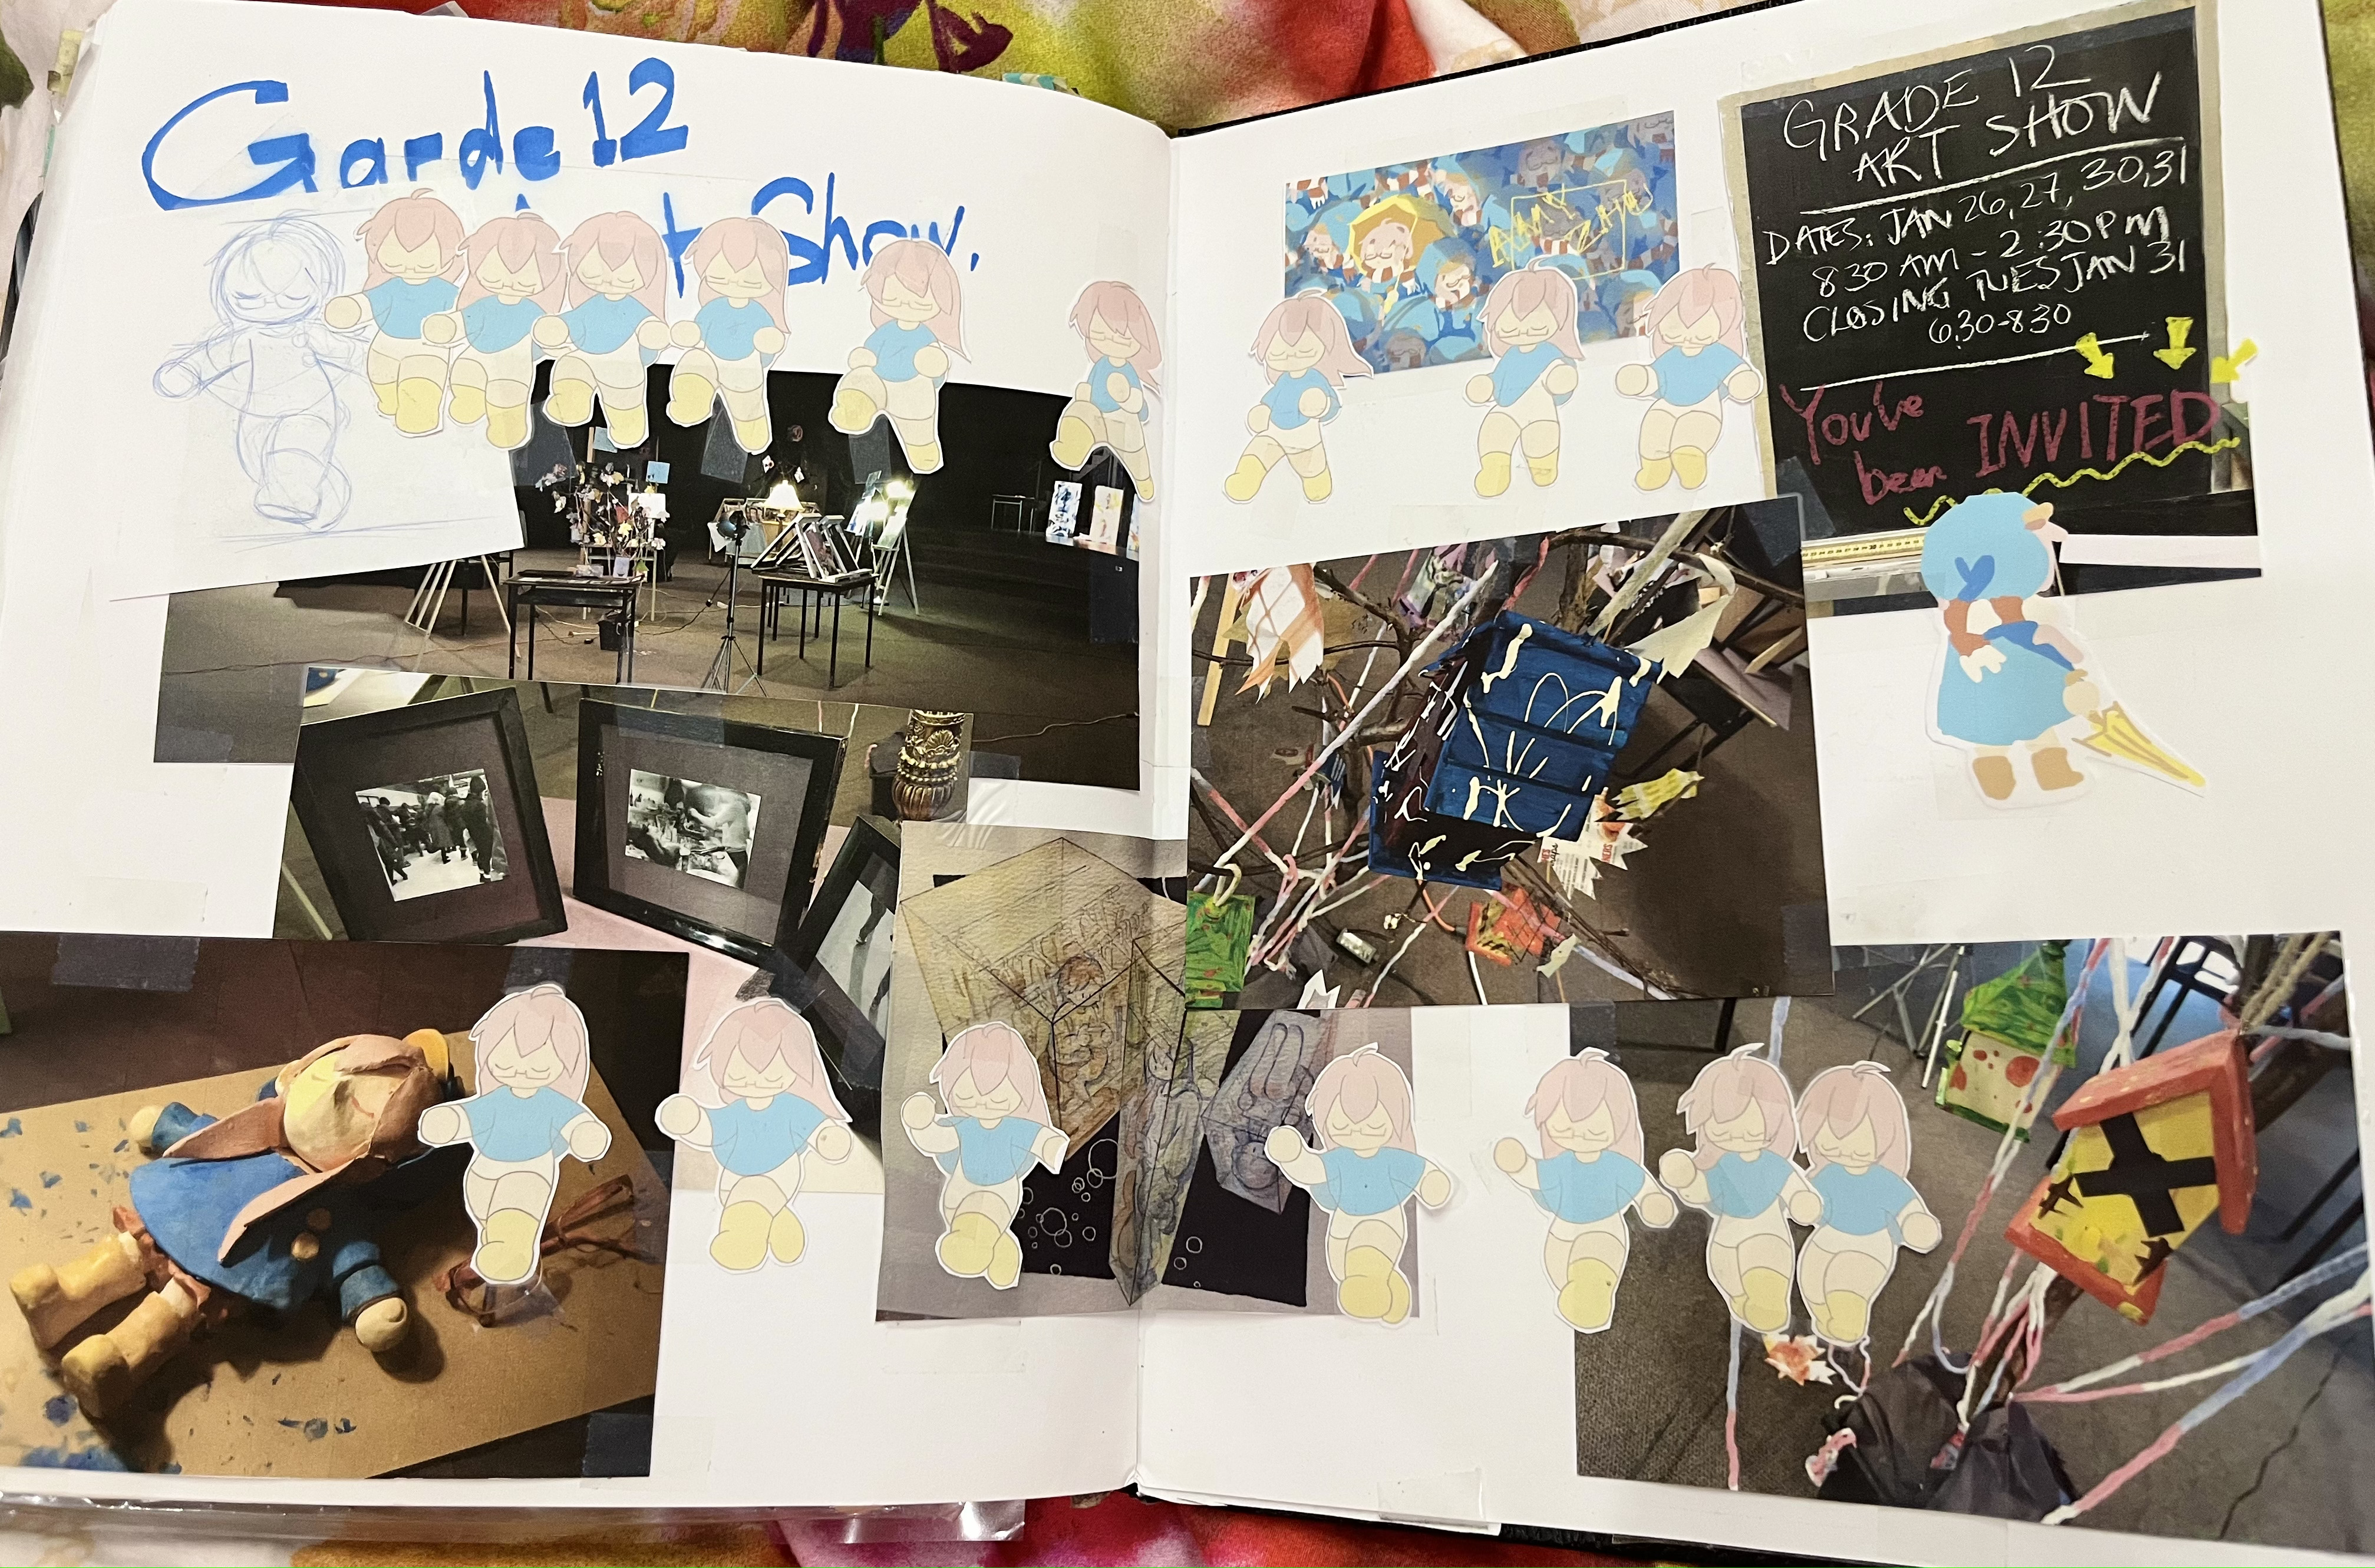 Garde 12
t Show.
GRADE 12
ART SHOW
DATES: JAN 26, 27, 30, 31
830 AM - 2:30PM
CLOSING TUES JAN 31
6.30-830
You've
been INVITED